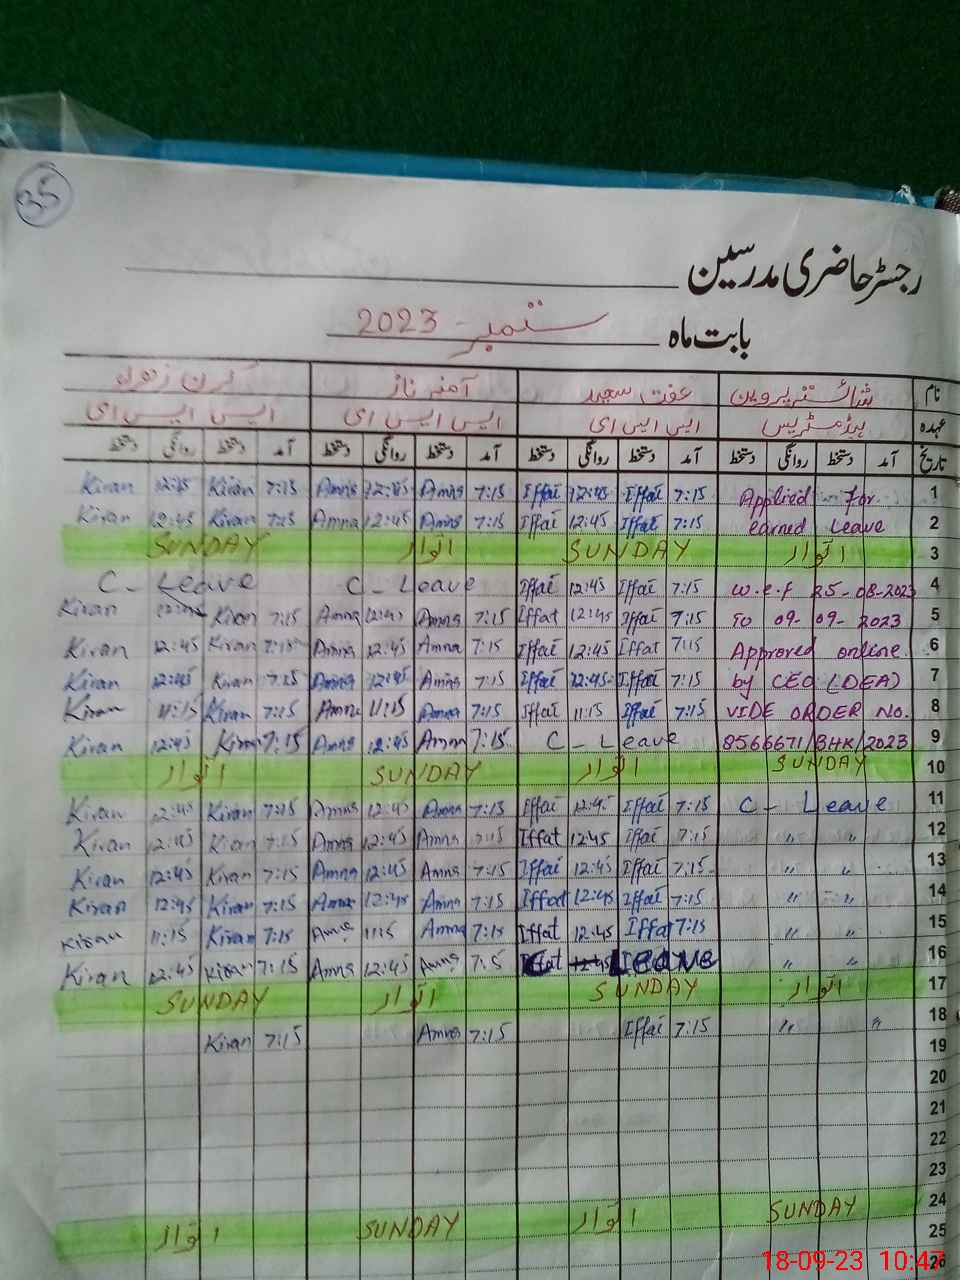 35
رجسٹر حاضری مدرسین
بابت ماہ ستمبر - 2023
نام شائستہ پروین عفت سعید آمنہ ناز کرن
عہدہ ہیڈ مسٹریس ایس ایس ای ایس ایس ای ایس ایس ای
تاریخ آمد دستخط روانگی دستخط آمد دستخط روانگی دستخط آمد دستخط روانگی دستخط آمد دستخط روانگی دستخط
Kiran 12:45 Kiran 7:15 Amna 12:45 Amna 7:15 Iffat 12:45 Iffat 7:15 Applied for 1
Kiran 12:45 Kiran 7:15 Amna 12:45 Amna 7:15 Iffat 12:45 Iffat 7:15 earned Leave 2
SUNDAY اتوار SUNDAY اتوار 3
C - Leave C - Leave Iffat 12:45 Iffat 7:15 w.e.f 25-08-2023 4
Kiran 12:45 Kiran 7:15 Amna 12:45 Amna 7:15 Iffat 12:45 Iffat 7:15 To 09-09-2023 5
Kiran 12:45 Kiran 7:15 Amna 12:45 Amna 7:15 Iffat 12:45 Iffat 7:15 Approved online 6
Kiran 12:45 Kiran 7:15 Amna 12:45 Amna 7:15 Iffat 12:45 Iffat 7:15 by CEO (DEA) 7
Kiran 11:15 Kiran 7:15 Amna 11:15 Amna 7:15 Iffat 11:15 Iffat 7:15 VIDE ORDER No. 8
Kiran 12:45 Kiran 7:15 Amna 12:45 Amna 7:15 C - Leave 8566671/BHK/2023 9
اتوار SUNDAY اتوار SUNDAY 10
Kiran 12:45 Kiran 7:15 Amna 12:45 Amna 7:15 Iffat 12:45 Iffat 7:15 C - Leave 11
Kiran 12:45 Kiran 7:15 Amna 12:45 Amna 7:15 Iffat 12:45 Iffat 7:15 " " 12
Kiran 12:45 Kiran 7:15 Amna 12:45 Amna 7:15 Iffat 12:45 Iffat 7:15 " " 13
Kiran 12:45 Kiran 7:15 Amna 12:45 Amna 7:15 Iffat 12:45 Iffat 7:15 " " 14
Kiran 11:15 Kiran 7:15 Amna 11:15 Amna 7:15 Iffat 12:45 Iffat 7:15 " " 15
Kiran 12:45 Kiran 7:15 Amna 12:45 Amna 7:5 Leave " " 16
SUNDAY اتوار SUNDAY اتوار 17
Kiran 7:15 Amna 7:15 Iffat 7:15 " " 18
19
20
21
22
23
اتوار SUNDAY اتوار SUNDAY 24
25
26
18-09-23 10:47